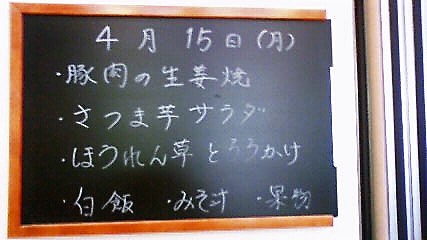 4月15日(月)
・豚肉の生姜焼
・さつま芋サラダ
・ほうれん草とろろかけ
・白飯 ・みそ汁 ・果物